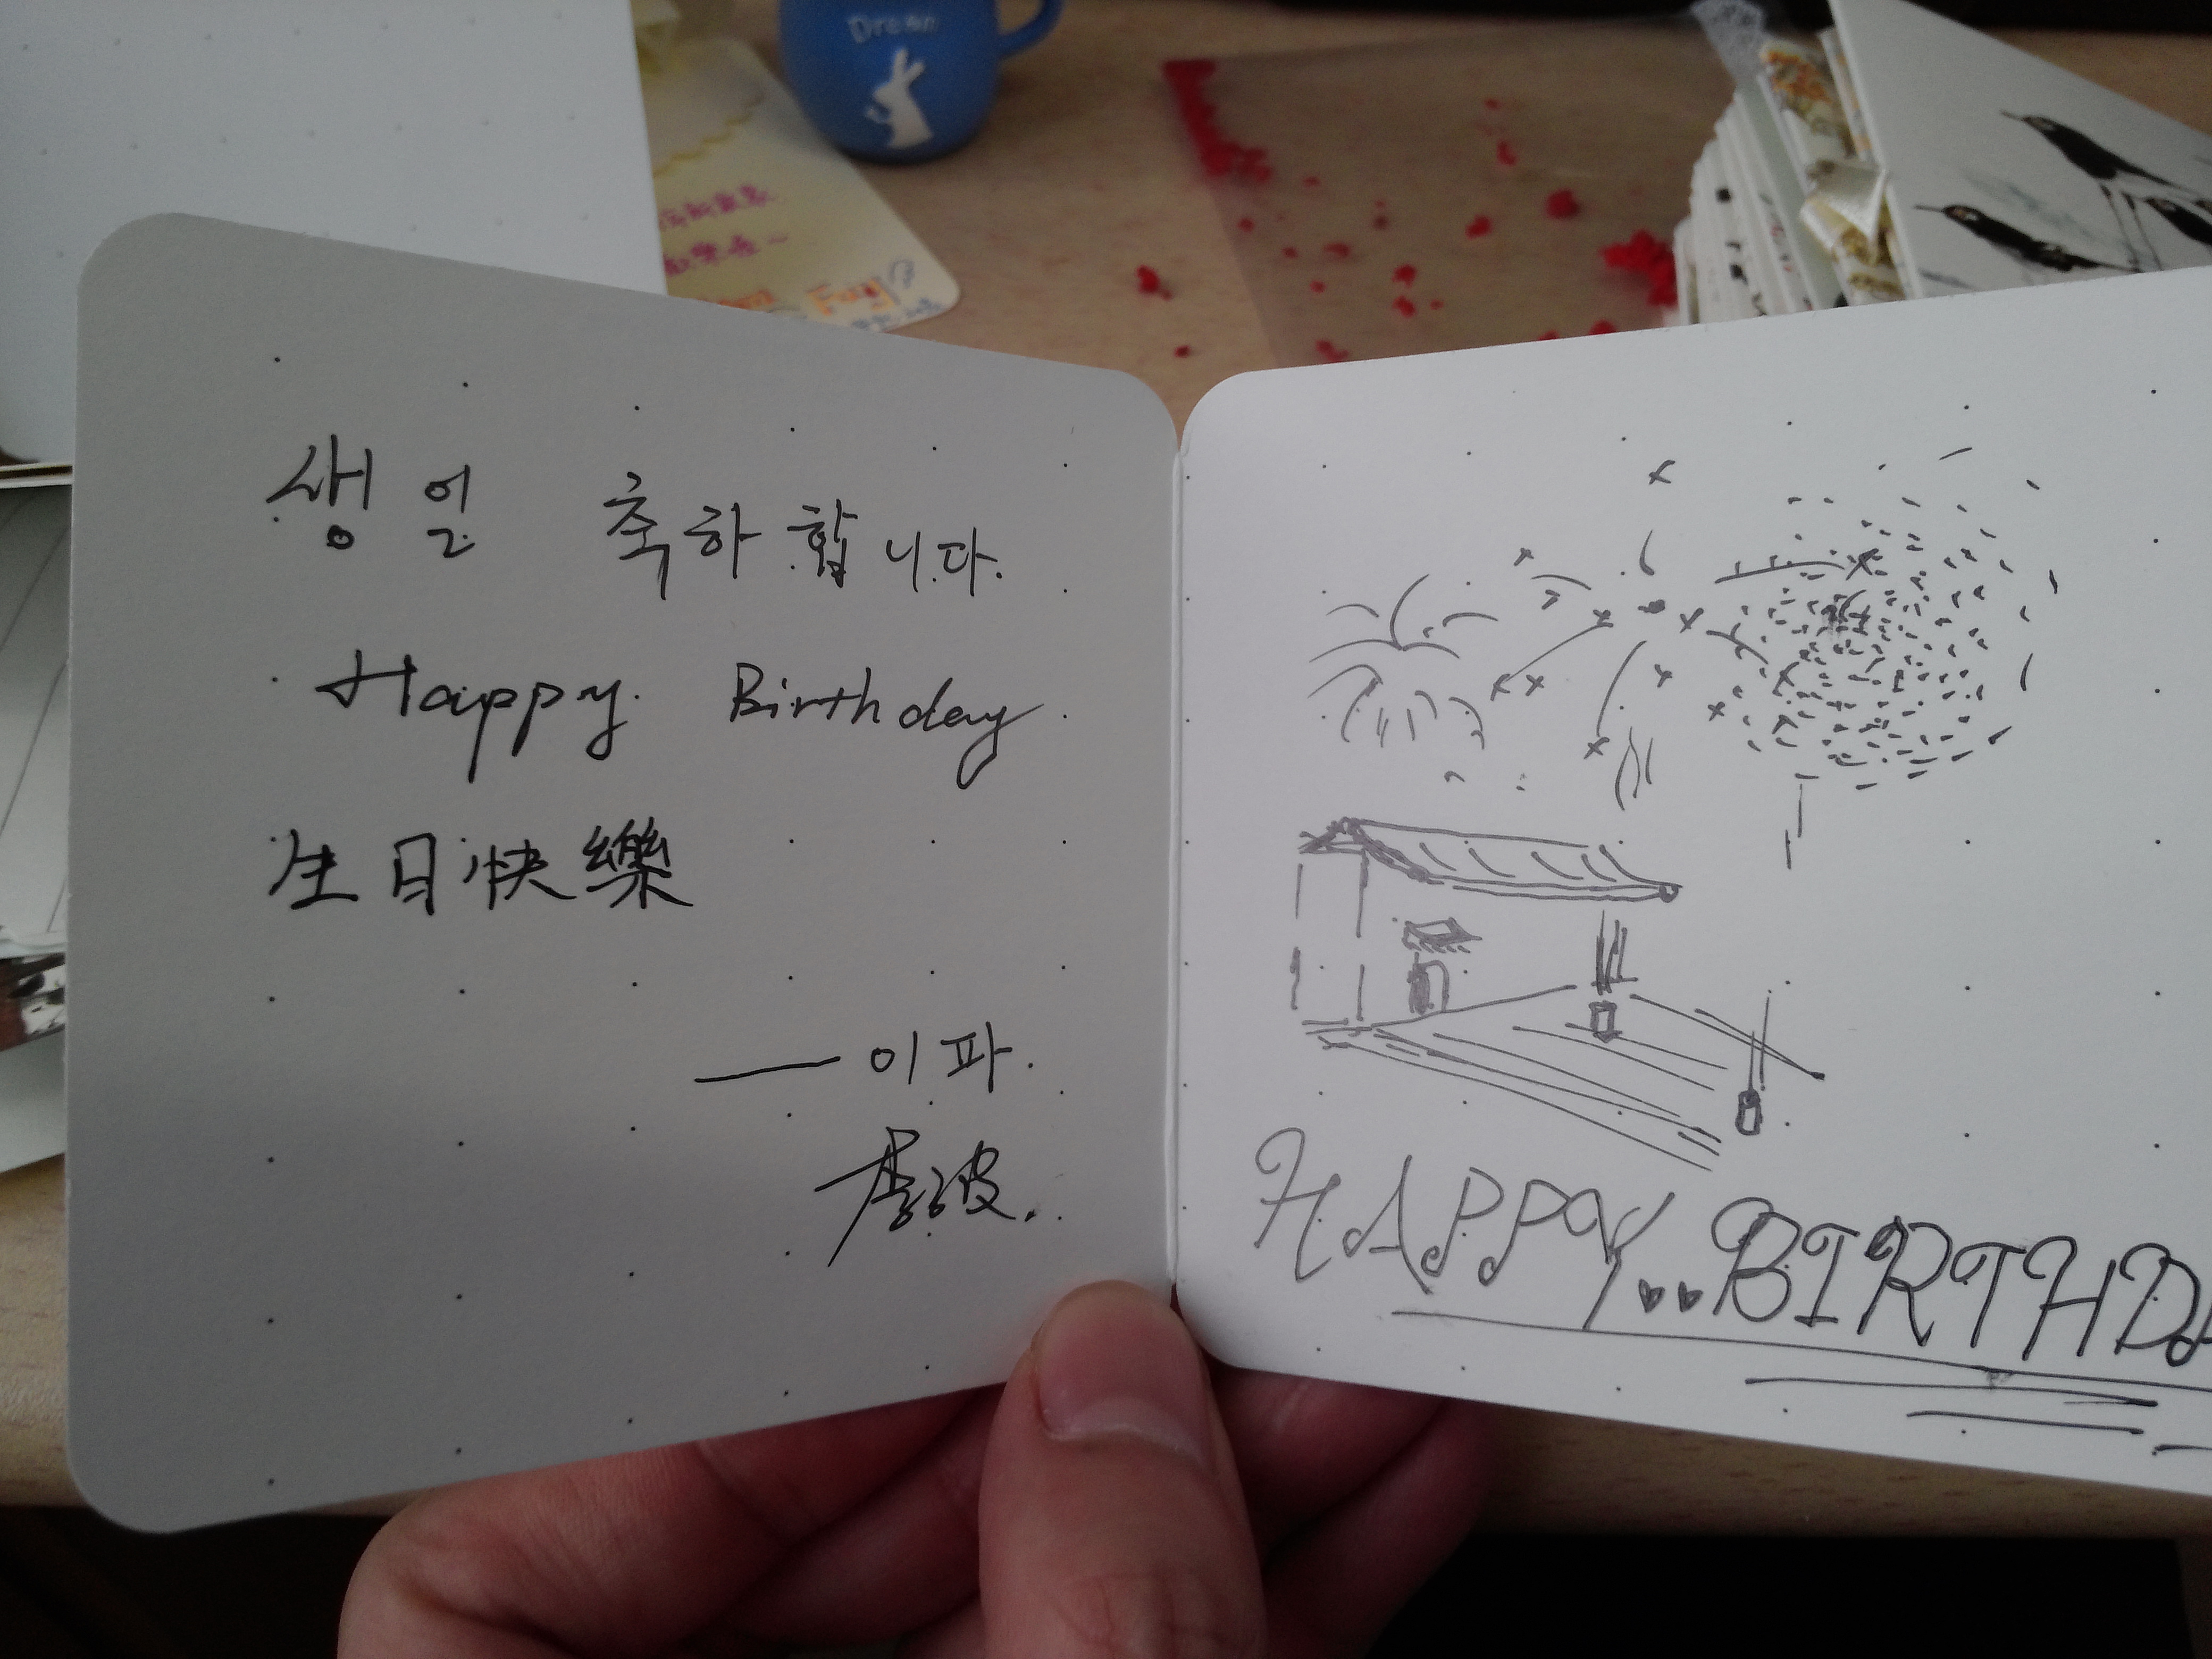 Dream
Fay
생일 축하합니다.
Happy Birthday
生日快樂
——이파.
李波.
HAPPY..BIRTHDA